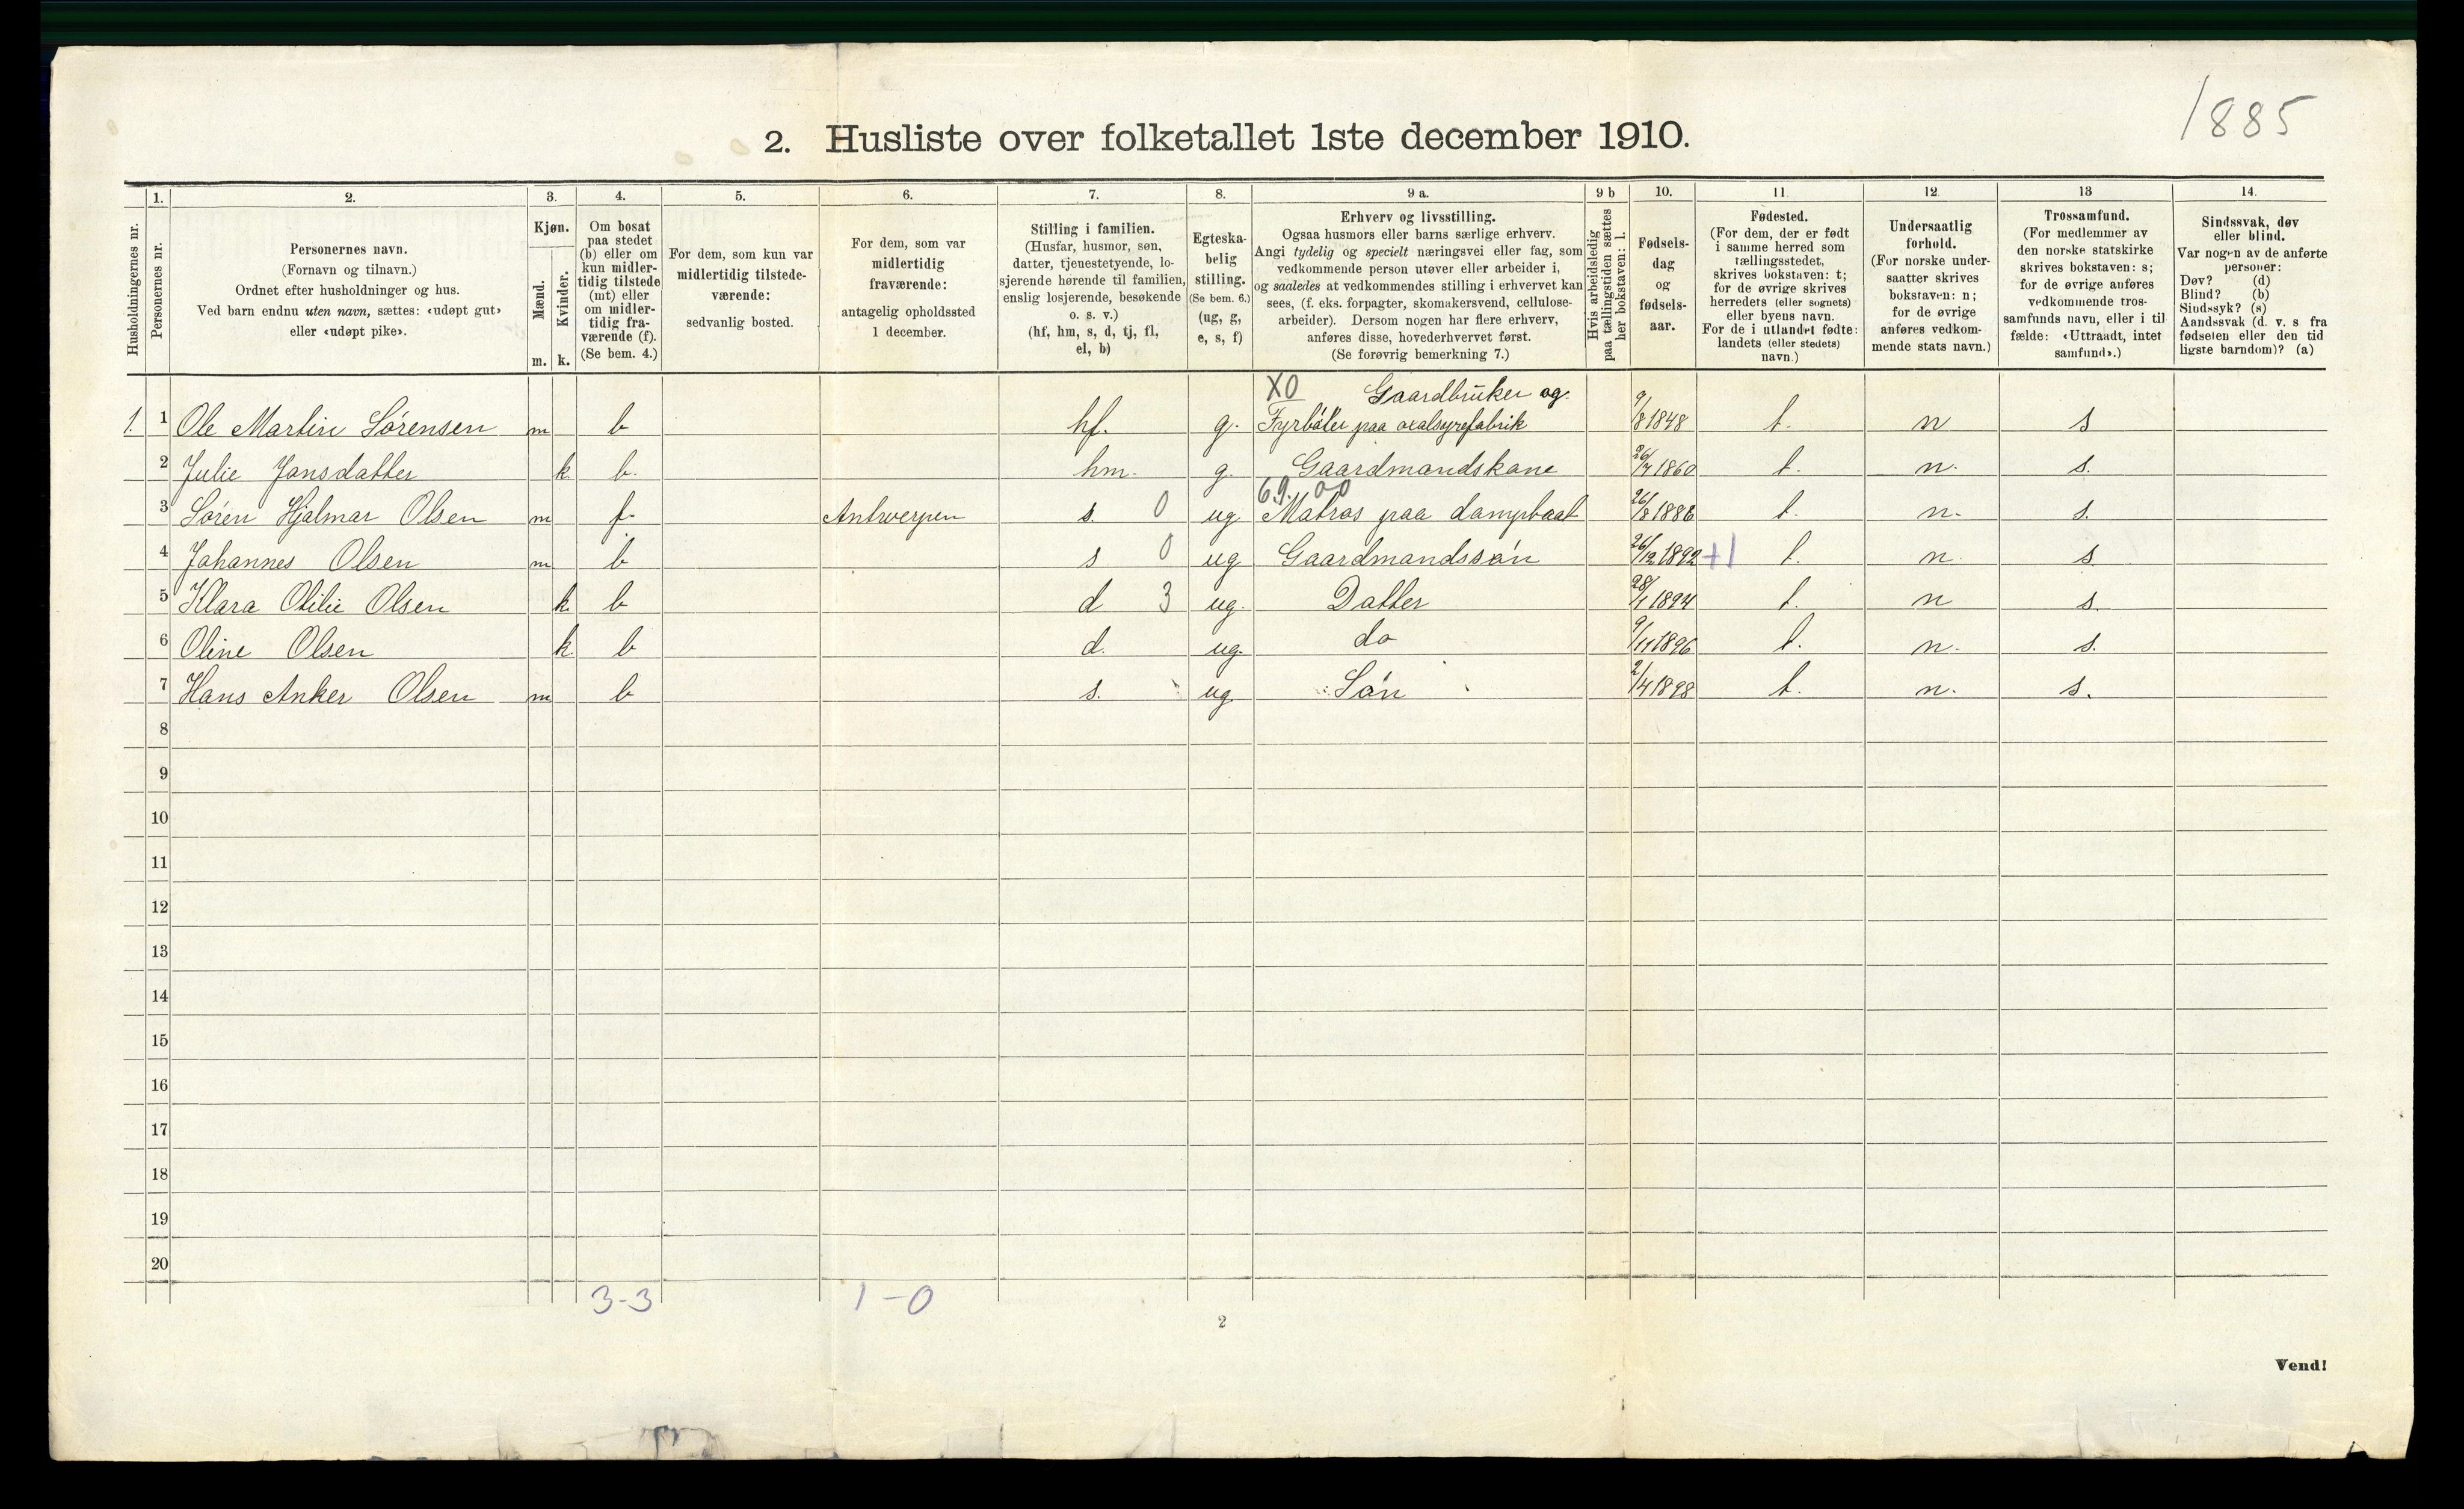 1885
2. Husliste over folketallet 1ste december 1910.
1. 2. 3. 4. 5. 6. 7. 8. 9 a. 9 b 10. 11. 12. 13 14.
Husholdningernes nr.
Personernes nr.
Personernes navn.
(Fornavn og tilnavn.)
Ordnet efter husholdninger og hus.
Ved barn endnu uten navn, sættes: «udøpt gut»
eller «udøpt pike».
Kjøn.
Mænd.
m.
Kvinder.
k.
Om bosat
paa stedet
(b) eller om
kun midler-
tidig tilstede
(mt) eller
om midler-
tidig fra-
værende (f).
(Se bem. 4.)
For dem, som kun var
midlertidig tilstede-
værende:
sedvanlig bosted.
For dem, som var
midlertidig
fraværende:
antagelig opholdssted
1 december.
Stilling i familien.
(Husfar, husmor, søn,
datter, tjenestetyende, lo-
sjerende hørende til familien,
enslig losjerende, besøkende
o. s. v.)
(hf, hm, s, d, tj, fl,
el, b)
Egteska-
belig
stilling.
(Se bem. 6.)
(ug, g,
e, s, f)
Erhverv og livsstilling.
Ogsaa husmors eller barns særlige erhverv.
Angi tydelig og specielt næringsvei eller fag, som
vedkommende person utøver eller arbeider i,
og saaledes at vedkommendes stilling i erhvervet kan
sees, (f. eks. forpagter, skomakersvend, cellulose-
arbeider). Dersom nogen har flere erhverv,
anføres disse, hovederhvervet først.
(Se forøvrig bemerkning 7.)
Hvis arbeidsledig
paa tællingstiden sættes
her bokstaven: l.
Fødsels-
dag
og
fødsels-
aar.
Fødested.
(For dem, der er født
i samme herred som
tællingsstedet,
skrives bokstaven: t;
for de øvrige skrives
herredets (eller sognets)
eller byens navn.
For de i utlandet fødte:
landets (eller stedets)
navn.)
Undersaatlig
forhold.
(For norske under-
saatter skrives
bokstaven: n;
for de øvrige
anføres vedkom-
mende stats navn.)
Trossamfund.
(For medlemmer av
den norske statskirke
skrives bokstaven: s;
for de øvrige anføres
vedkommende tros-
samfunds navn, eller i til
fælde: «Uttraadt, intet
samfund».)
Sindssvak, døv
eller blind.
Var nogen av de anførte
personer:
Døv? (d)
Blind? (b)
Sindssyk? (s)
Aandssvak (d. v. s fra
fødselen eller den tid
ligste barndom)? (a)
XO Gaardbruker og
1. 1 Ole Martin Sørensen m b hf. g. Fyrbøter paa oxalsyrefabrik 9/8 1848 t. n s
2 Julie Jansdatter k b. hm. g. Gaardmandskone 26/7 1860 t. n. s.
6.9. 00
3 Søren Hjalmar Olsen m f. Antwerpen s. 0 ug Matros paa dampbaat 26/8 1888 t. n. s.
4 Johannes Olsen m b s 0 ug Gaardmandssøn 26/12 1892 +1 t. n. s.
5 Klara Otilie Olsen k b d 3 ug. Datter 28/1 1894 t. n s.
6 Oline Olsen k. b d. ug. do 9/11 1896 t. n. s.
7 Hans Anker Olsen m b s. ug. Søn 2/4 1898 t. n. s.
8
9
10
11
12
13
14
15
16
17
18
19
20
3-3 1-0
2
Vend!